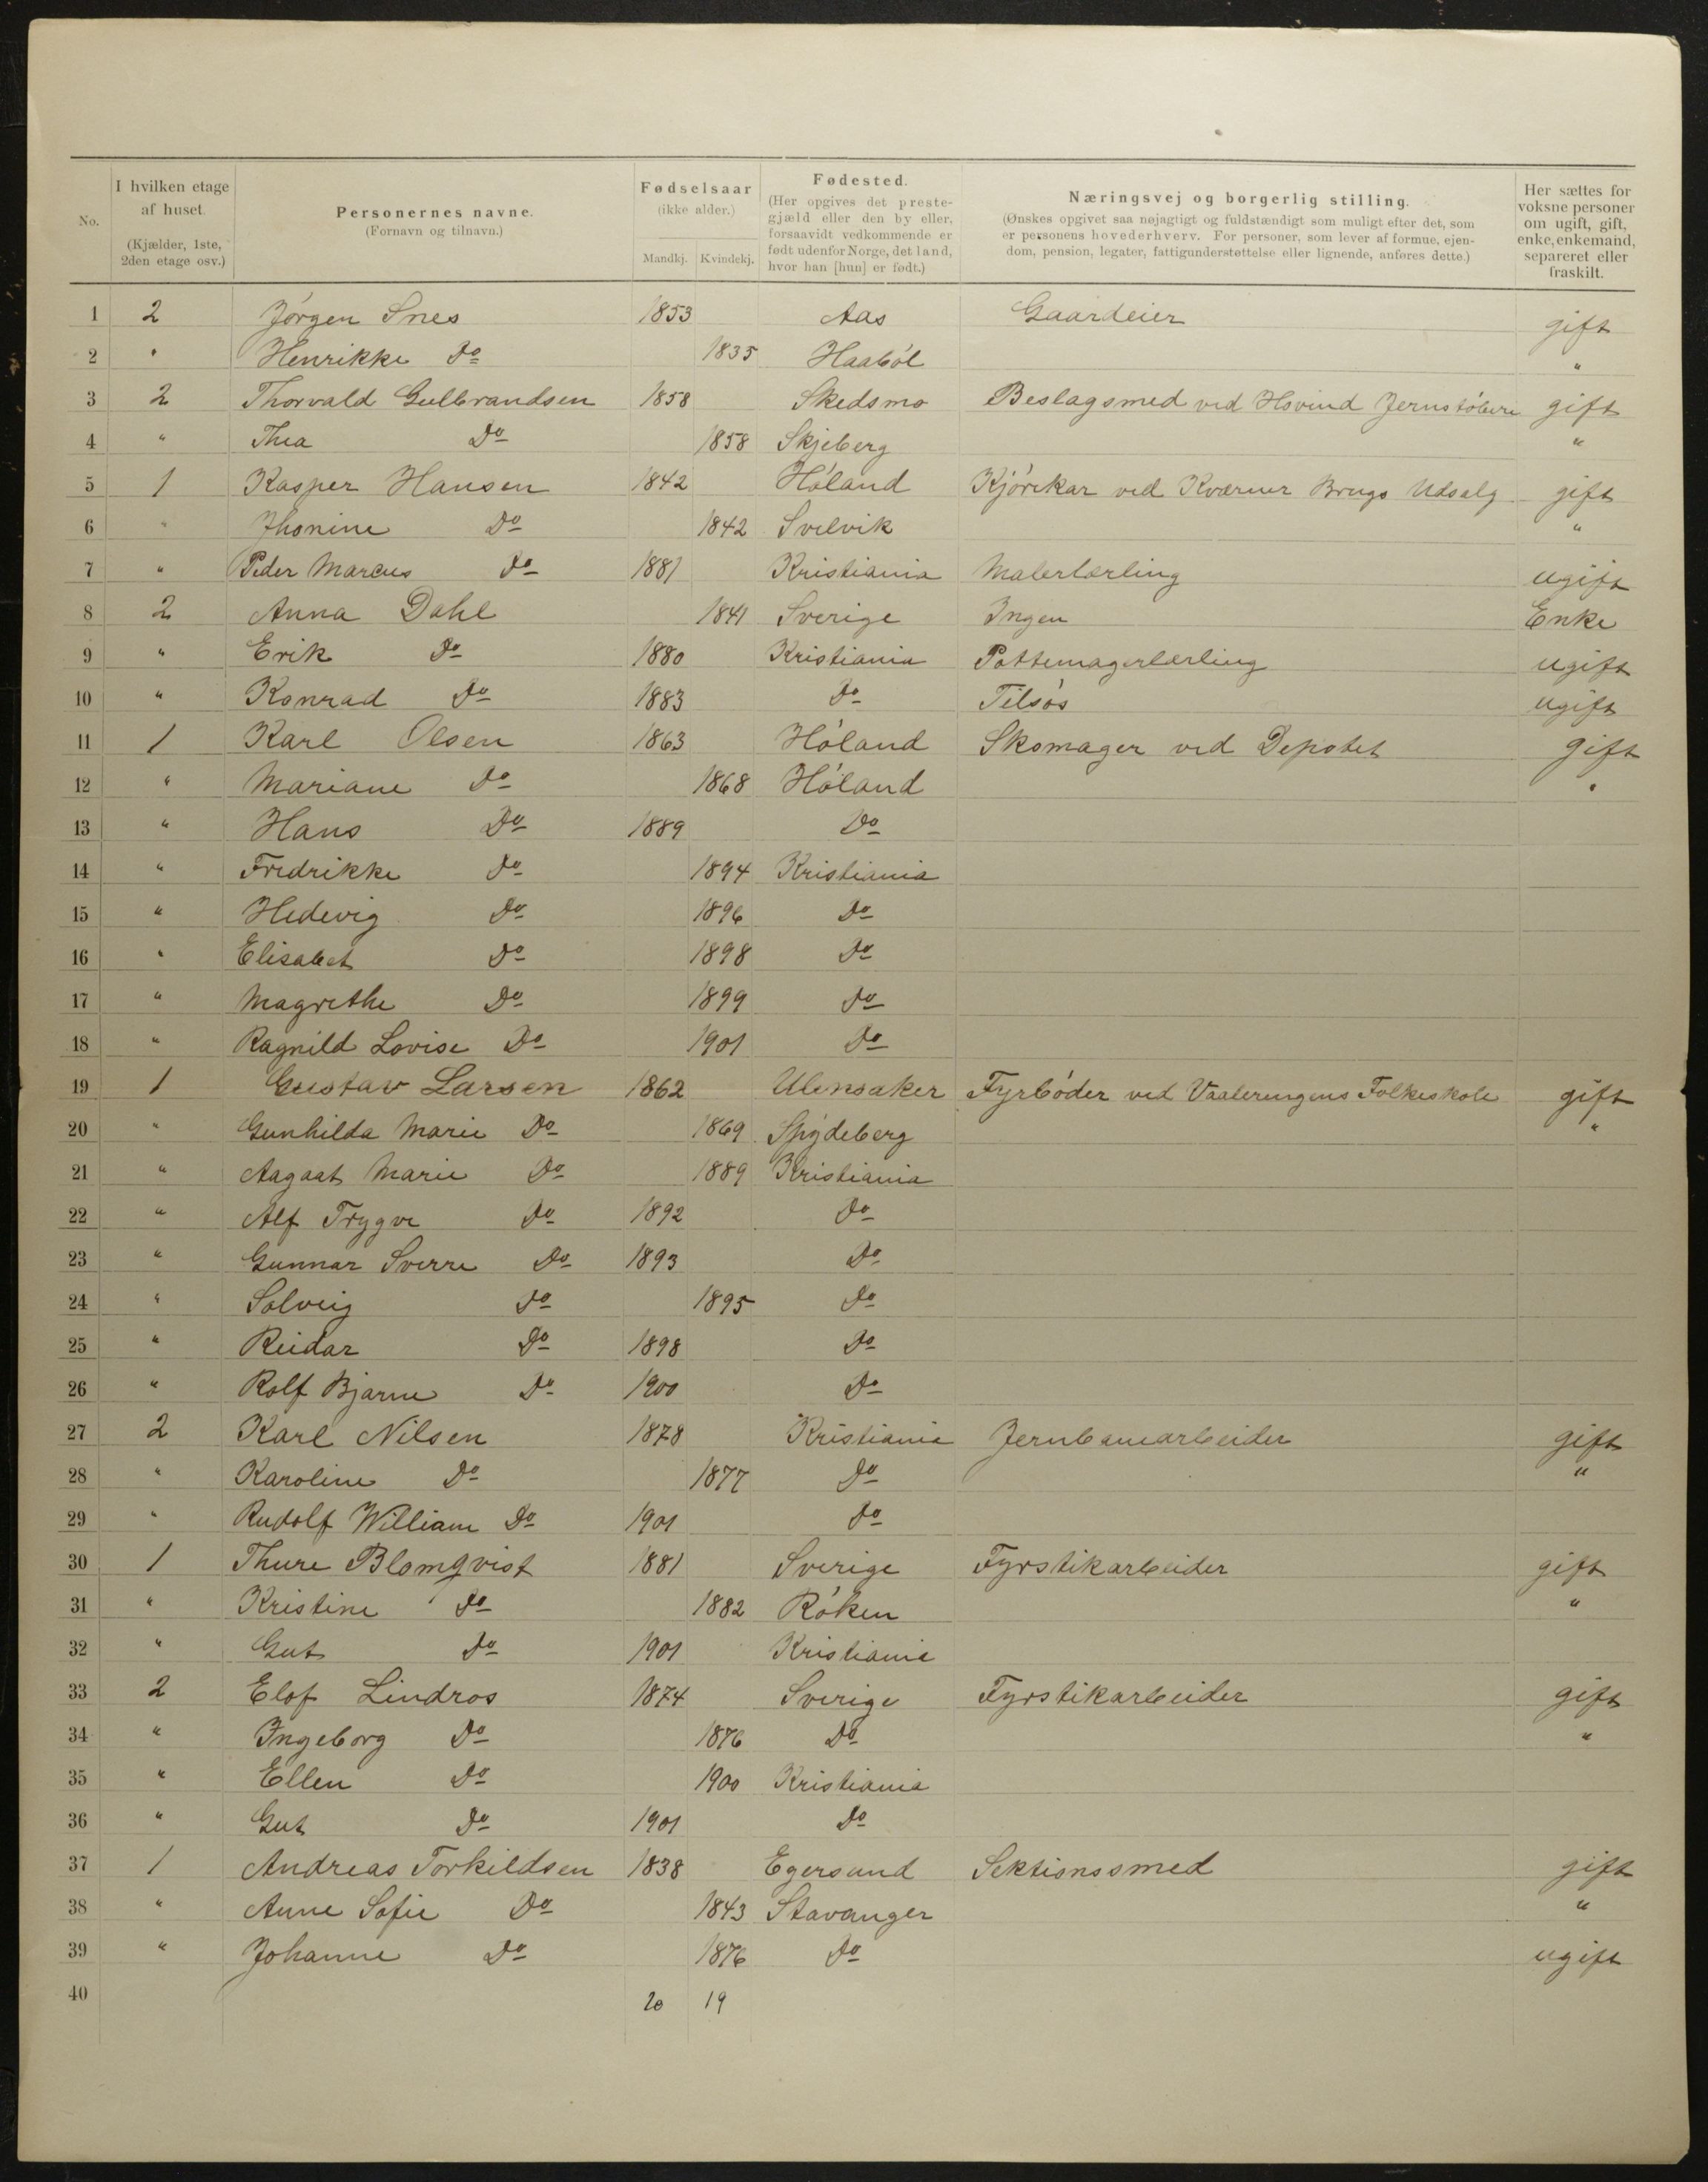 No. I hvilken etage af huset. (Kjælder, 1ste, 2den etage osv.) Personernes navne. (Fornavn og tilnavn.) Fødselsaar (ikke alder.) Mandkj. Kvindekj. Fødested. (Her opgives det prestegjæld eller den by eller, forsaavidt vedkommende er født udenfor Norge, det land, hvor han [hun] er født.) Næringsvej og borgerlig stilling. (Ønskes opgivet saa nøjagtigt og fuldstændigt som muligt efter det, som er personens hovederhverv. For personer, som lever af formue, ejendom, pension, legater, fattigunderstøttelse eller lignende, anføres dette.) Her sættes for voksne personer om ugift, gift, enke, enkemand, separeret eller fraskilt.
1 2 Jørgen Snes 1853 Aas Gaardeier gift
2 " Henrikke Do 1835 Haabøl "
3 2 Thorvald Gulbrandsen 1858 Skedsmo Beslagsmed ved Hovind Jernstøberi gift
4 " Thea Do 1858 Skjeberg "
5 1 Kasper Hansen 1842 Høland Kjørekar ved Kværner Brugs Udsalg gift
6 " Jhonine Do 1842 Svelvik "
7 " Peder Marcus Do 1881 Kristiania Malerlærling ugift
8 2 Anna Dahl 1841 Sverige Ingen Enke
9 " Erik Do 1880 Kristiania Pottemagerlærling ugift
10 " Konrad Do 1883 Do Tilsøs ugift
11 1 Karl Olsen 1863 Høland Skomager ved Depotet gift
12 " Mariane Do 1868 Høland "
13 " Hans Do 1889 Do
14 " Fredrikke Do 1894 Kristiania
15 " Hedevig Do 1896 Do
16 " Elisabet Do 1898 Do
17 " Magrethe Do 1899 Do
18 " Ragnild Lovise Do 1901 Do
19 1 Gustav Larsen 1862 Ulensaker Fyrbøder ved Vaalerengens Folkeskole gift
20 " Gunhilda Marie Do 1869 Spydeberg "
21 " Aagaat Marie Do 1889 Kristiania
22 " Alf Trygve Do 1892 Do
23 " Gunnar Sverre Do 1893 Do
24 " Solveig Do 1895 Do
25 " Reidar Do 1898 Do
26 " Rolf Bjarne Do 1900 Do
27 2 Karl Nilsen 1878 Kristiania Jernbanearbeider gift
28 " Karoline Do 1877 Do "
29 " Rudolf William Do 1901 Do
30 1 Thure Blomqvist 1881 Sverige Fyrstikarbeider gift
31 " Kristine Do 1882 Røken "
32 " Gut Do 1901 Kristiania
33 2 Elof Lindros 1874 Sverige Fyrstikarbeider gift
34 " Ingeborg Do 1876 Do "
35 " Ellen Do 1900 Kristiania
36 " Gut Do 1901 Do
37 1 Andreas Torkildsen 1838 Egersund Sektionssmed gift
38 " Anne Sofie Do 1843 Stavanger "
39 " Johanne Do 1876 Do ugift
40 20 19